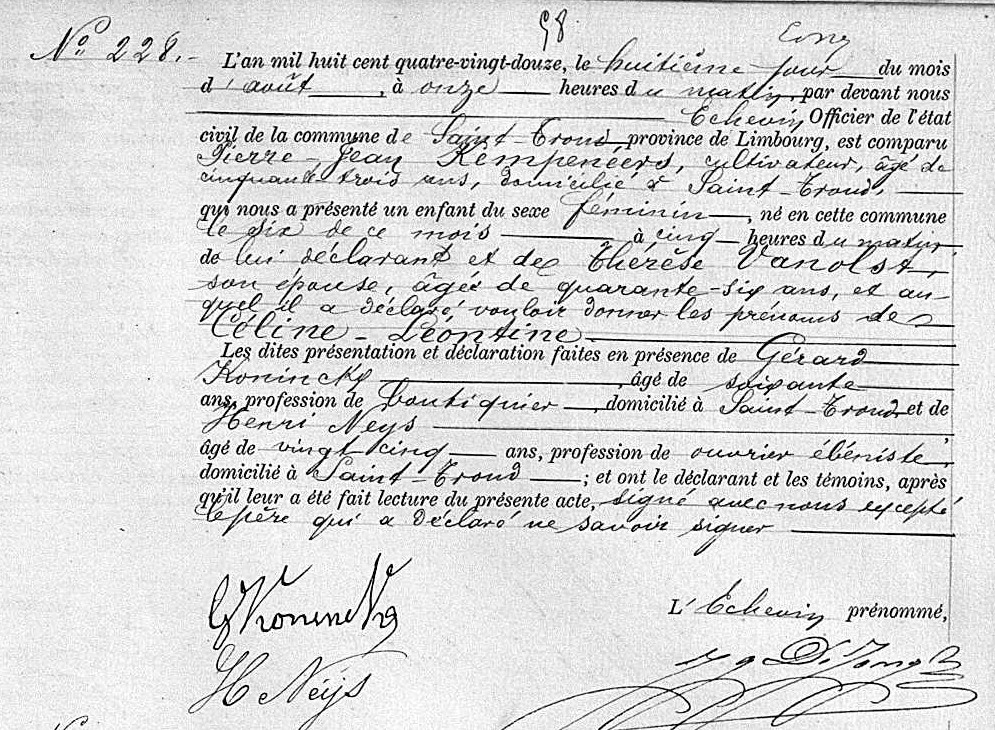 58
Nº 228.-
L'an mil huit cent quatre-vingt-douze, le huitième jour du mois
d'août, à onze heures du matin, par devant nous
Echevin Officier de l'état
civil de la commune de Saint-Trond, province de Limbourg, est comparu
Pierre-Jean Kempeneers, cultivateur, âgé de
cinquante trois ans, domicilié à Saint-Trond,
qui nous a présenté un enfant du sexe féminin, né en cette commune
le six de ce mois à cinq heures du matin
de lui déclarant et de Thérèse Vanolst,
son épouse, âgée de quarante-six ans, et au-
quel il a déclaré vouloir donner les prénoms de
Céline-Léontine
Les dites présentation et déclaration faites en présence de Gérard
Koninckx, âgé de soixante
ans, profession de boutiquier, domicilié à Saint-Trond et de
Henri Neijs,
âgé de vingt cinq ans, profession de ouvrier ébéniste,
domicilié à Saint-Trond; et ont le déclarant et les témoins, après
qu'il leur a été fait lecture du présente acte, signé avec nous excepté
le père qui a déclaré ne savoir signer
G Koninckx
L'Echevin prénommé,
H Neijs